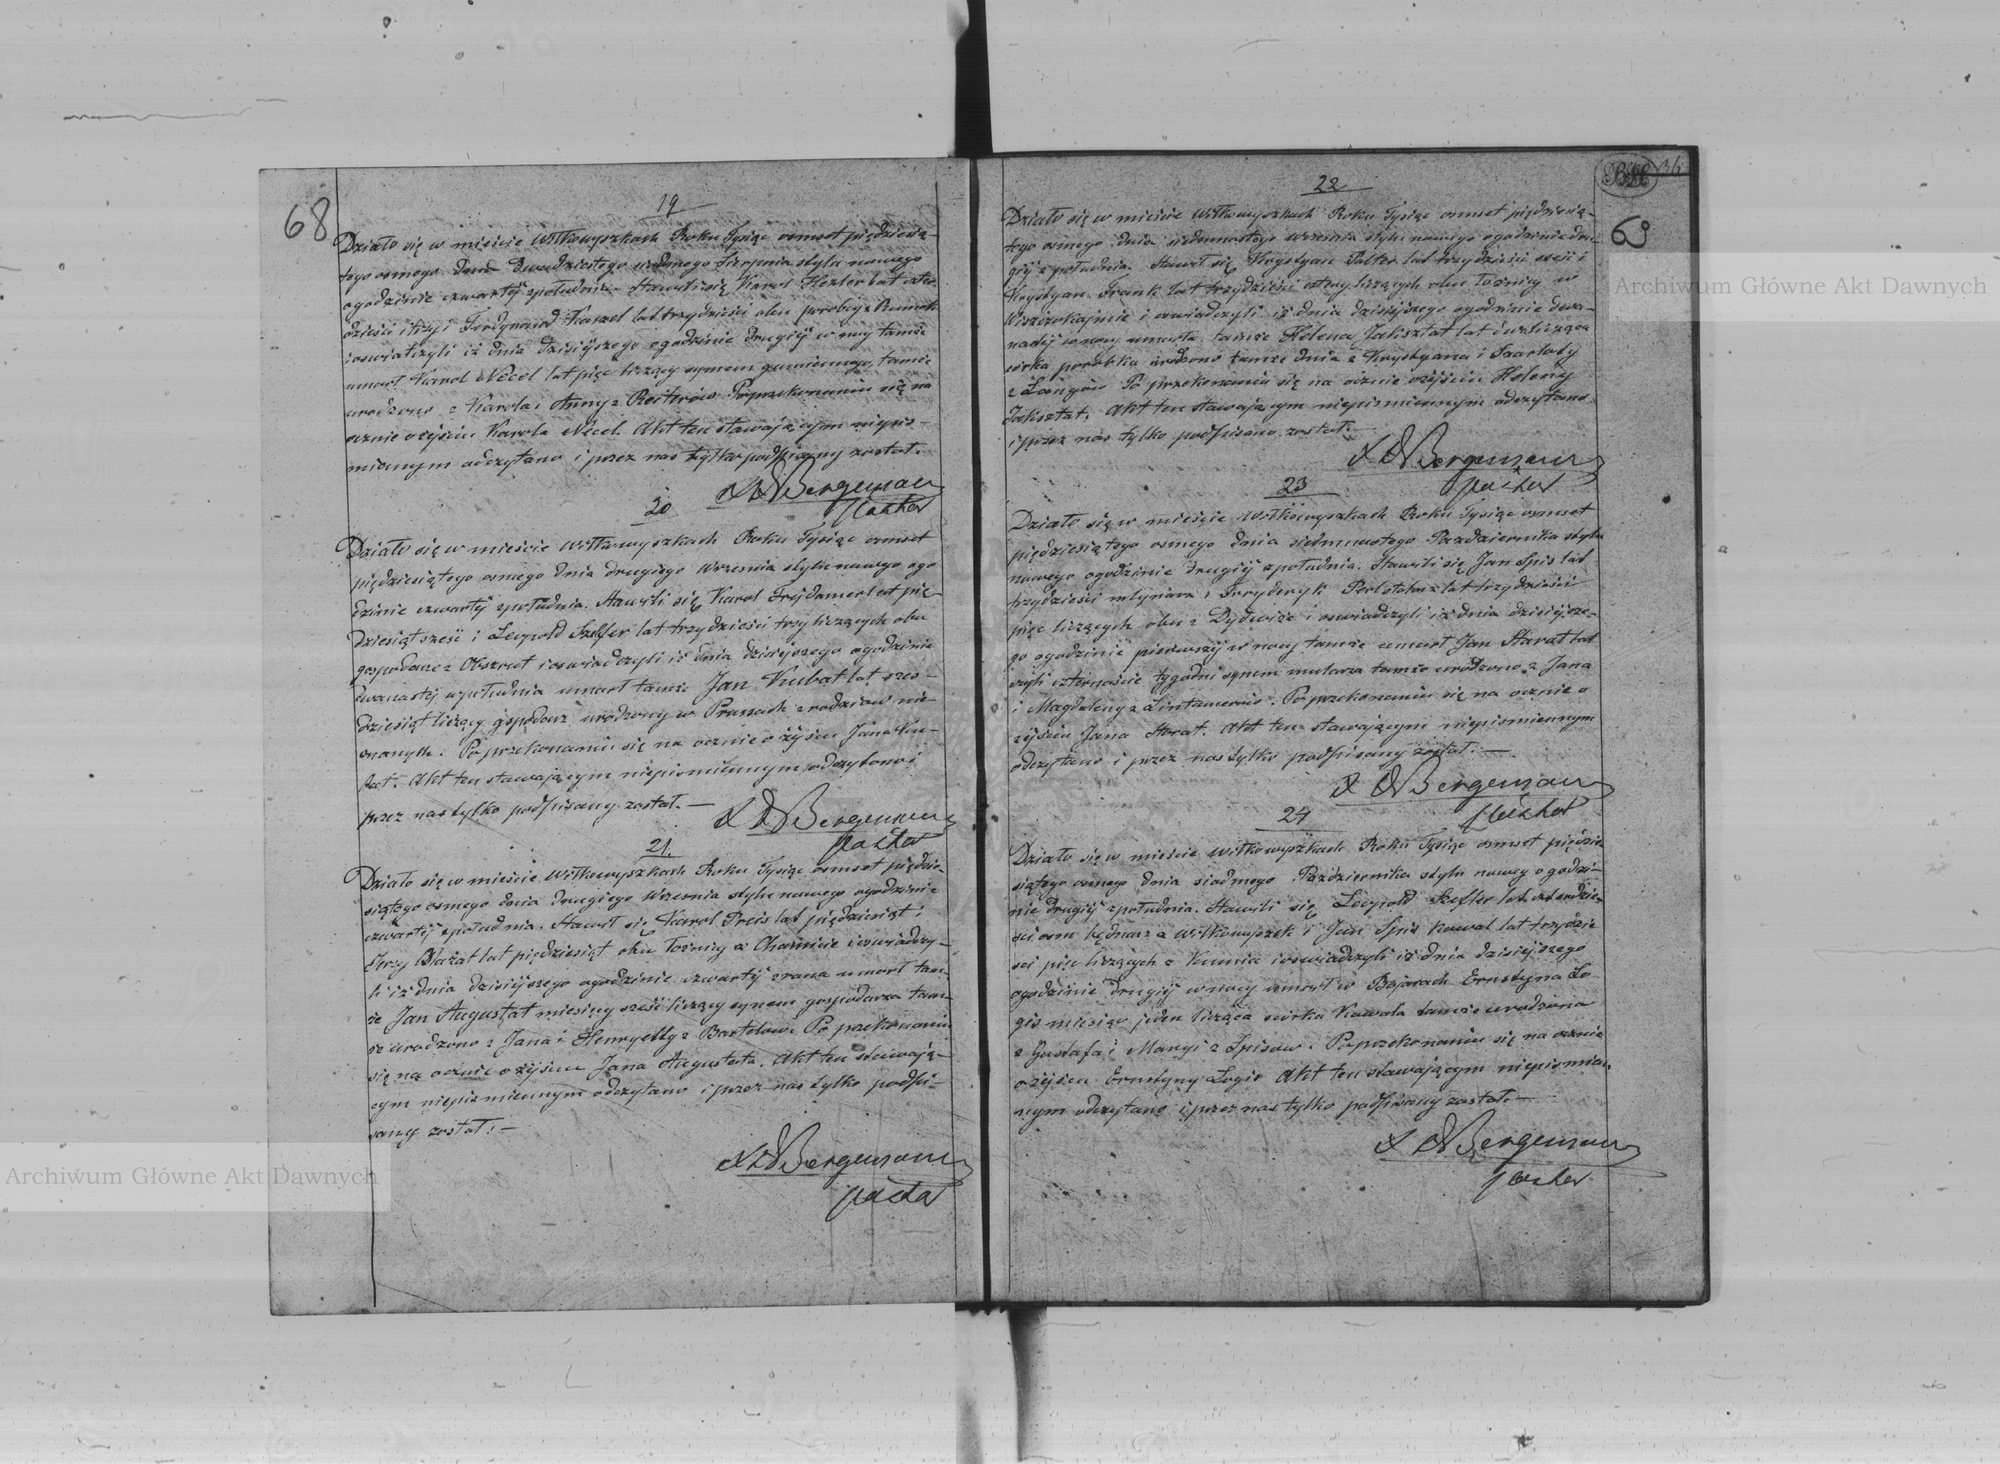 68
19
Działo się w mieście Wiłkowyszkach Roku Tysiąc ośmset pięćdziesią-
tego ósmego dnia Dwudziestego siódmego Sierpnia stylu nowego
o godzinie czwartéj z południa. Stawili się Karol Hexler lat czter-
dzieści i trzy i Ferdynand Kuszel lat trzydzieści obu parobcy z
i oświadczyli iż dnia dzisiejszego o godzinie drugiéj w nocy tamże
umarł Karol Necel lat pięć liczący synem gumiennego, tamże
urodzono z Karola i Anny z Po przekonaniu się na
ocznie o zejściu Karola Necel. Akt ten stawającym niepis-
miennym odczytano i przez nas tylko podpisany został.
X A Bergemann
Pastor
20
Działo się w mieście Wiłkowyszkach Roku Tysiąc ośmset
pięćdziesiątego ósmego dnia drugiego Września stylu nowego o go
dzinie czwartéj z południa. Stawili się Karol Frydamer lat pię-
dziesiąt sześć i Leopold Szefler lat trzydzieści trzy liczących obu
gospodarze z Obszrut i oświadczyli iż dnia dzisiejszego o godzinie
dwunastéj z południa umarł tamże Jan Kubat lat sześ-
dziesiąt liczący gospodarz urodzony w Prusach z rodziców nie-
znanych. Po przekonaniu się na ocznie o zejściu Jana Ku-
bat. Akt ten stawającym niepismiennym odczytano i
przez nas tylko podpisany został.—
X A Bergemann
Pastor
21.
Działo się w mieście Wiłkowyszkach Roku Tysiąc ośmset pięćdzie-
siątego ósmego dnia Drugiego Września stylu nowego o godzinie
czwartéj z południa. Stawił się Karol Preis lat pięćdziesiąt i
Jerzy Błażat lat pięćdziesiąt obu Tożnicy w i oświadczy-
li iż dnia dzisiejszego o godzinie czwartéj z rana umarł tam-
że Jan Augustat miesięcy sześć liczący synem gospodarza tam-
że urodzono z Jana i Henryetty z Bartelów. Po przekonaniu
się na ocznie o zejściu Jana Augustata. Akt ten stawają-
cym niepismiennym odczytano i przez nas tylko podpi-
sany został.—
X A Bergemann
Pastor
36
69
22
Działo się w mieście Wiłkowyszkach Roku Tysiąc ośmset pięćdziesią-
tego ósmego dnia siedmnastego Września stylu nowego o godzinie dru-
giéj z południa. Stawił się Krystyan Palter lat trzydzieści sześć i
Krystyan Frank lat trzydzieści cztery liczących obu Tożnicy w
Wiszczokajmie i oświadczyli iż dnia dzisiejszego o godzinie dwu-
nastéj w nocy umarła tamże Helena Jaksztat lat dwa licząca
córka parobka urodzona tamże dnia z Krystyana i Szarloty
z Langów. Po przekonaniu się na ocznie o zejściu Heleny
Jaksztat. Akt ten stawającym niepismiennym odczytano
i przez nas tylko podpisano został.—
X A Bergemann
Pastor
23
Działo się w mieście Wiłkowyszkach Roku Tysiąc ośmset
pięćdziesiątego ósmego dnia siedmnastego Października stylu
nowego o godzinie drugiéj z południa. Stawili się Jan Spis lat
trzydzieści młynarz i Fryderyk lat trzydzieści
pięć liczących obu z Dydwiże i oświadczyli iż dnia dzisiejsze-
go o godzinie pierwszéj w nocy tamże umarł Jan Starat
czternaście tygodni synem mularza tamże urodzono z Jana
i Magdaleny z Lintamerów. Po przekonaniu się na ocznie o
zejściu Jana Starat. Akt ten stawającym niepismiennym
odczytano i przez nas tylko podpisany został.—
X A Bergemann
Pastor
24
Działo się w mieście Wiłkowyszkach Roku Tysiąc ośmset pięćdzie
siątego ósmego dnia siódmego Października stylu nowego o godzi-
nie drugiéj z południa. Stawili się Leopold Szefler lat czterdzie-
ści ósm będnarz z Wiłkowyszek i Jan Spis kowal lat trzydzie
ści pięć liczących z Kumia i oświadczyli iż dnia dzisiejszego
o godzinie drugiéj w nocy umarł w Bojarach Ernstyna Lo-
gis miesiąc jeden licząca córka Kowala tamże urodzona
z Gustafa i Maryi z Spisów. Po przekonaniu się na ocznie
o zejściu Ernstyny Logis Akt ten stawającym niepismien-
nym odczytano i przez nas tylko podpisany został.—
X A Bergemann
Pastor
Archiwum Główne Akt Dawnych
Archiwum Główne Akt Dawnych